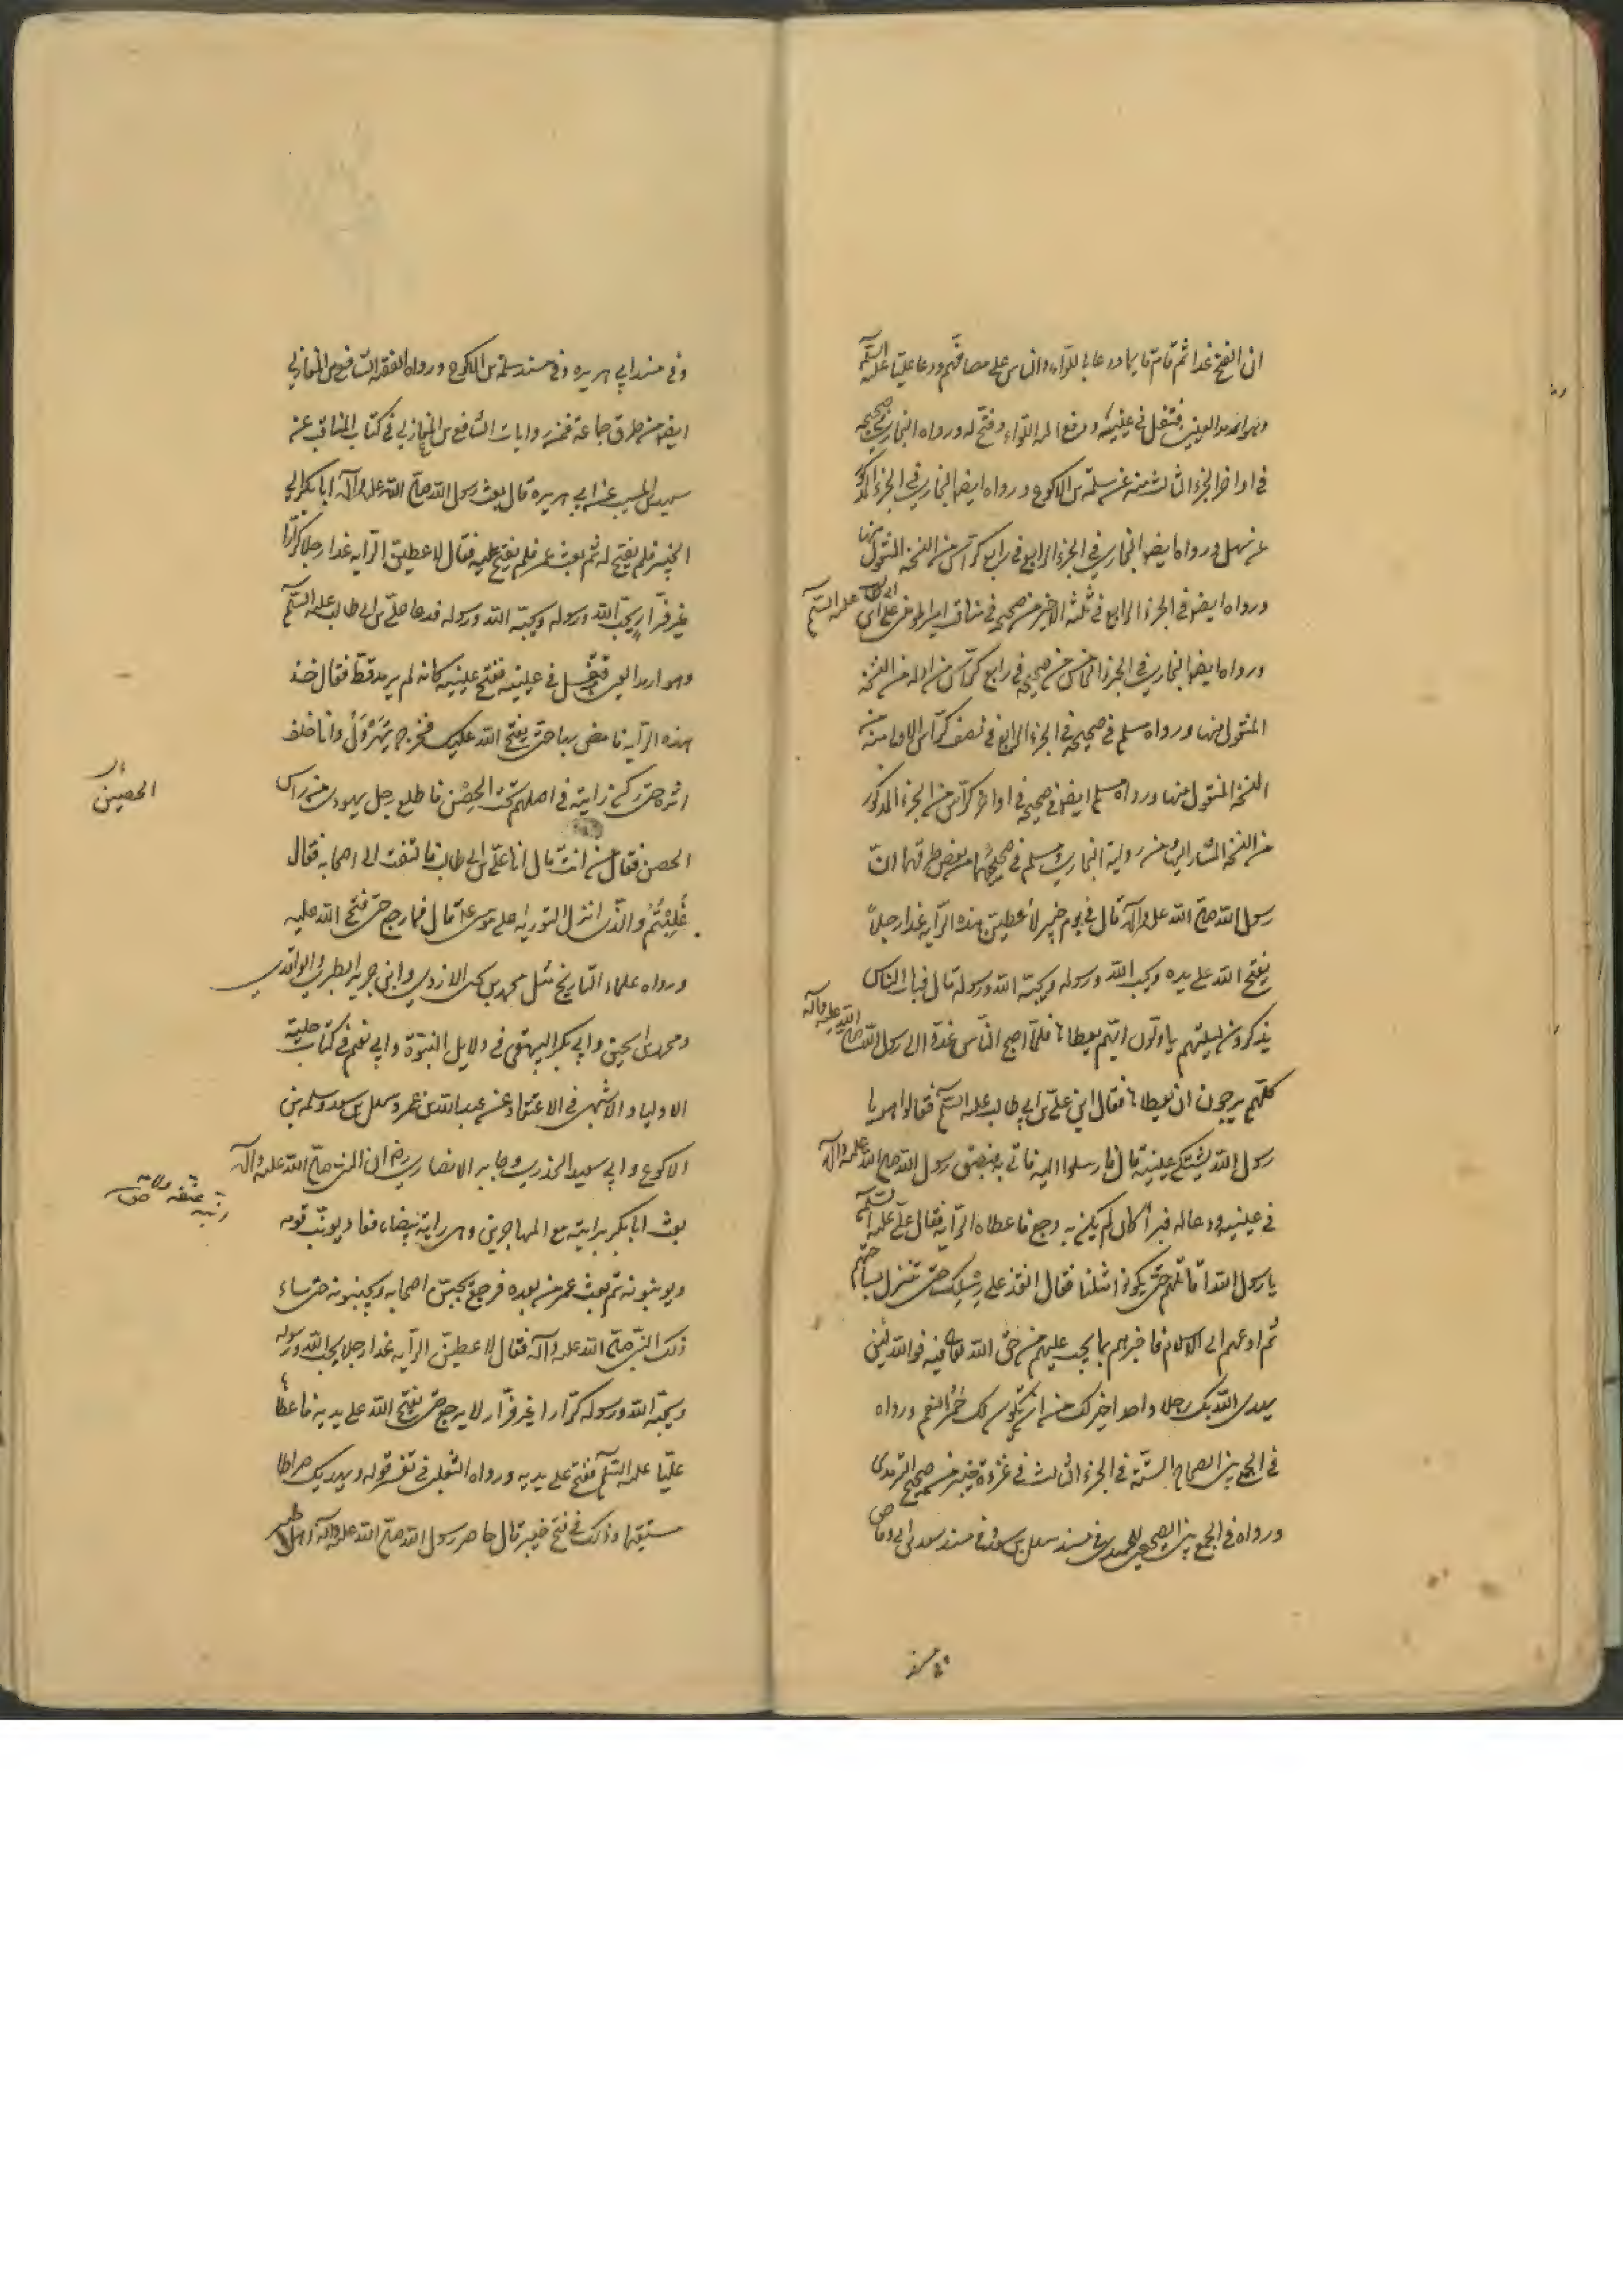 ان الفتح غدا ثم قام قايما ودعا باللواء والناس على مصافهم ودعا عليا عليه السلم
وهو ارمد العين فتفل في عينيه ودفع اليه اللواء وفتح له ورواه البخاري في صحيحه
في اواخر الجزء الثالث منه عن سلمة بن الاكوع ورواه ايضا البخاري في الجزء المذكور
عن سهل ورواه ايضا البخاري في الجزء الرابع في رابع كراس من النسخة المنقول منها
ورواه ايضا في الجزء الرابع في ثلثه الاخير من صحيحه في مناقب امير المؤمنين علي بن ابي طالب عليه السلم
ورواه ايضا البخاري في الجزء الخامس من صحيحه في رابع كراس من اوله من النسخة
المنقول منها ورواه مسلم في صحيحه في الجزء الرابع في نصف كراس الاول منه من
النسخة المنقول منها ورواه مسلم ايضا في صحيحه في اواخر كراس من الجزء المذكور
من النسخة المشار اليها فمن رواية البخاري ومسلم في صحيحهما من بعض طرقهما ان
رسول الله صلى الله عليه واله قال في يوم خيبر لأعطين هذه الراية غدا رجلاً
يفتح الله على يده ويحب الله ورسوله ويحبه الله ورسوله قال فبات الناس
يذكرون ليلتهم ايهم يعطاها فلما اصبح الناس غدوا الى رسول الله صلى الله عليه واله
كلهم يرجون ان يعطاها فقال اين علي بن ابي طالب عليه السلم فقالوا هو يا
رسول الله يشتكي عينيه قال فارسلوا اليه فاتي به فبصق رسول الله صلى الله عليه واله
في عينيه ودعا له فبرأ كان لم يكن به وجع فاعطاه الراية فقال علي عليه السلم
يا رسول الله اقاتلهم حتى يكونوا مثلنا فقال انفذ على رسلك حتى تنزل بساحتهم
ثم ادعهم الى الاسلام فاخبرهم بما يجب عليهم من حق الله تعالى فيه فوالله لئن
يهدى الله بك رجلا واحدا خير لك من ان تكون لك حُمُر النعم ورواه
في الجمع بين الصحاح الستة في الجزء الثالث في غزوة خيبر من صحيح الترمدى
ورواه في الجمع بين الصحيحين للحميدي في مسند سهل بن سعد وفي مسند سعد بن ابي وقاص
وفي مسند ابي هريره وفي مسند سلمة بن الاكوع ورواه الفقيه الشافعي بن المغازلي
ايضا من طرق جماعة فمن روايات الشافعي بن المغازلي في كتاب المناقب عن
سعيد بن المسيب عن ابي هريره قال بعث رسول الله صلى الله عليه واله ابا بكر الى
الخيبر فلم يفتح له ثم بعث عمر فلم يفتح عليه فقال لاعطين الراية غدا رجلا كرارا
غير فرار يحب الله ورسوله ويحبه الله ورسوله فدعا علي بن ابي طالب عليه السلم
وهو ارمد العين فتفل في عينيه ففتح عينيه كانه لم يرمد قط فقال خذ
هذه الراية فامض بها حتى يفتح الله عليك فخرج يهرول وانا خلف
اثره حتى ركز رايته في اصلهم تحت الحصن فاطلع رجل يهودى من راس
الحصين
الحصن فقال من انت قال انا علي بن ابي طالب فالتفت الى اصحابه فقال
غُلِبْتُم والذى انزل التورية على موسى قال فما رجع حتى فتح الله عليه
ورواه علماء التاريخ مثل محمد بن يحى الازدي وابن جرير الطبري والواقدي
ومحمد بن اسحق وابي بكر البيهقي في دلايل النبوة وابي نعيم في كتاب حلية
الاولياء والاشنهى في الاعتقاد عن عبدالله بن عمر وسهل بن سعد وسلمه بن
الاكوع وابي سعيد الخذري وجابر الانصاري ان النبي صلى الله عليه واله
بعث ابا بكر برايته مع المهاجرين وهى راية بيضاء فعاد يونب قومه
ويونبونه ثم بعث عمر من بعده فرجع يجبن اصحابه ويجبنونه حتى ساء
ذلك النبي صلى الله عليه واله فقال لاعطين الراية غدا رجلا يحب الله ورسوله
ويحبه الله ورسوله كرارا غير فرار لا يرجع حتى يفتح الله على يديه فاعطاها
عليا عليه السلم ففتح على يديه ورواه الثعلبى في تفسير قوله ويهديك صراطا
مستقيما وذلك في فتح خيبر قال حاصر رسول الله صلى الله عليه واله اهل خيبر
وفي مسند